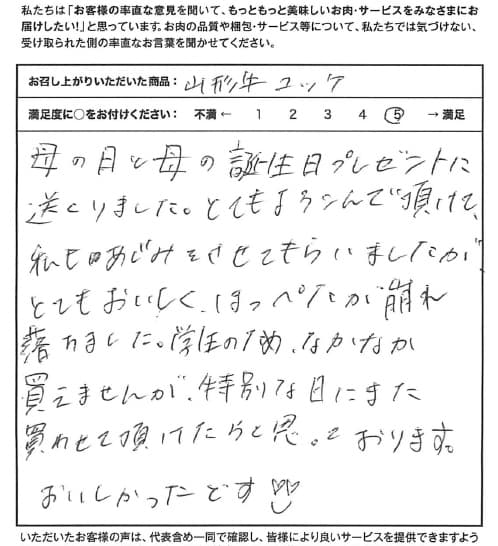 私たちは「お客様の率直な意見を聞いて、もっともっと美味しいお肉・サービスをみなさまにお
届けしたい!」と思っています。お肉の品質や梱包・サービス等について、私たちでは気づけない、
受け取られた側の率直なお言葉を聞かせてください。
お召し上がりいただいた商品: 山形牛ユッケ
満足度に○をお付けください: 不満 ← 1 2 3 4 5 → 満足
母の日と母の誕生日プレゼントに
送くりました。とてもよろこんで頂けて、
私もあじみをさせてもらいましたが
とてもおいしく、ほっぺたが崩れ
落ちました。学生のため、なかなか
買えませんが、特別な日にまた
買わせて頂けたらと思っております。
おいしかったです
いただいたお客様の声は、代表含め一同で確認し、皆様により良いサービスを提供できますよう